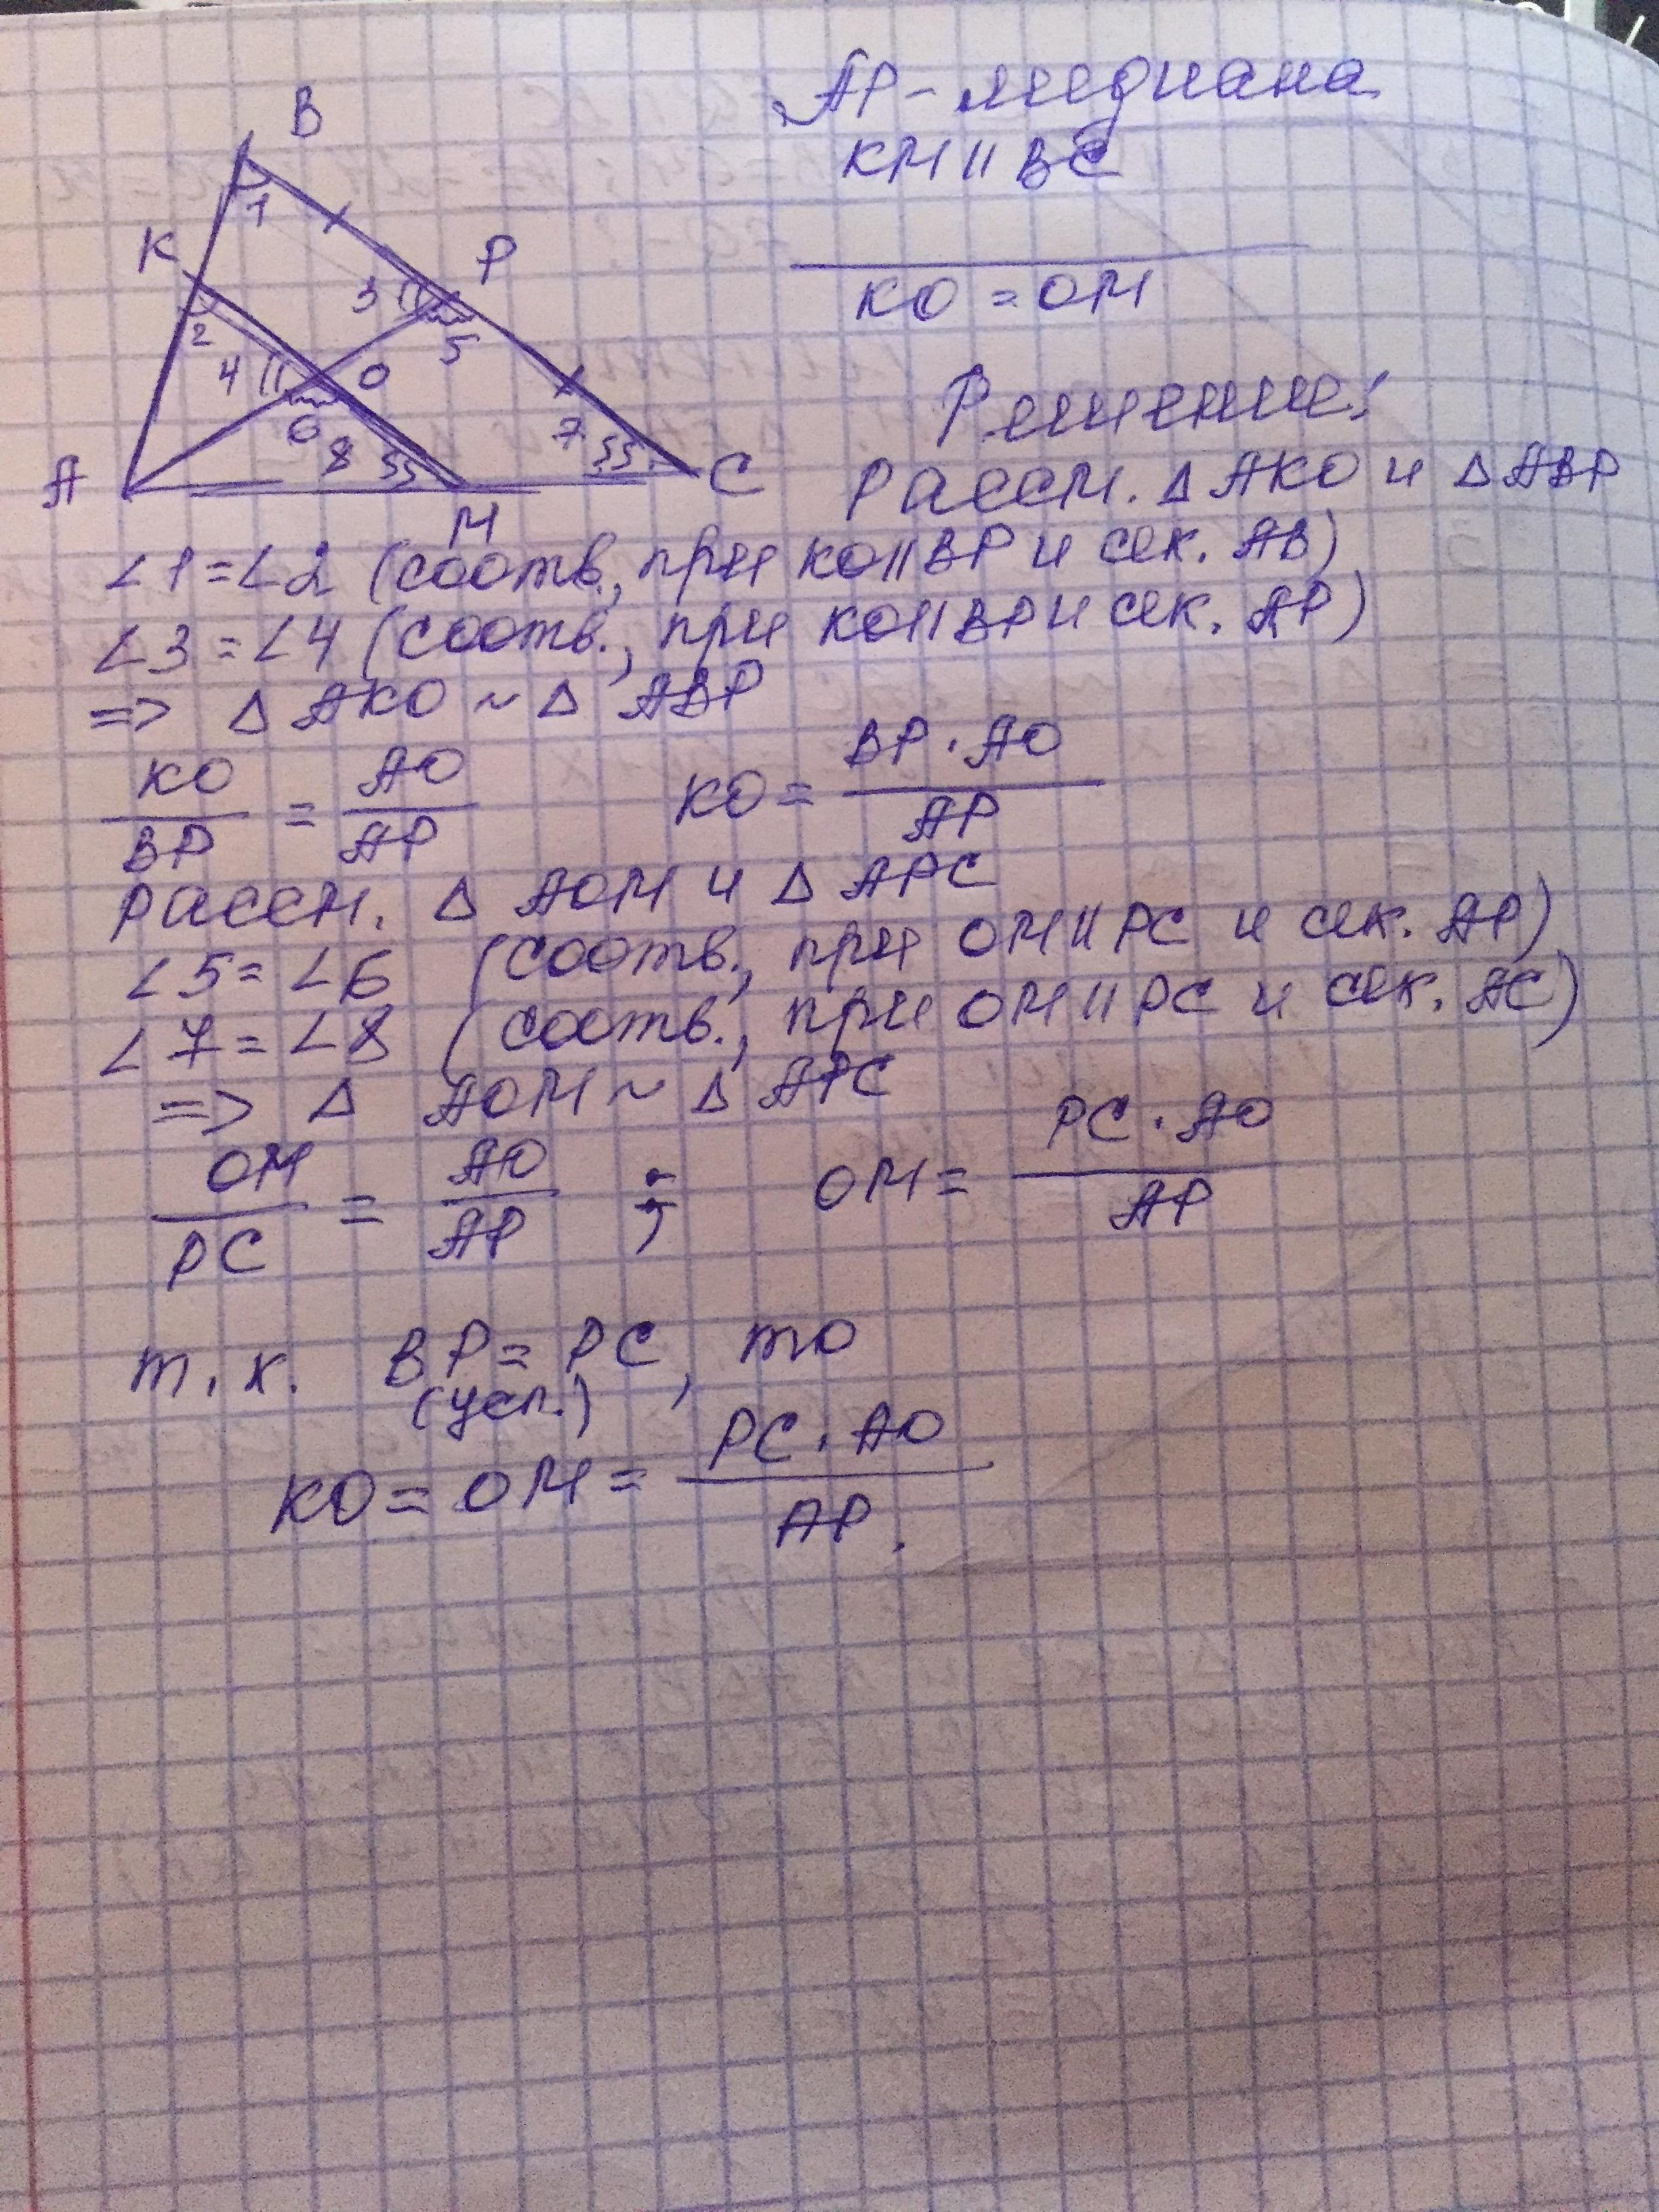 AP - медиана
KM || BC
KO = OM
B
1
K
P
3
2
5
4
O
6
7
8
A
C
M
Решение:
Рассм. Δ AKO и Δ ABP
∠1 = ∠2 (соотв., при KO || BP и сек. AB)
∠3 = ∠4 (соотв., при KO || BP и сек. AP)
=> Δ AKO ~ Δ ABP
KO/BP = AO/AP KO = BP · AO/AP
Рассм. Δ AOM и Δ APC
∠5 = ∠6 (соотв., при OM || PC и сек. AP)
∠7 = ∠8 (соотв., при OM || PC и сек. AC)
=> Δ AOM ~ Δ APC
OM/PC = AO/AP ; OM = PC · AO/AP
т.к. BP = PC, то
(усл.)
KO = OM = PC · AO/AP.